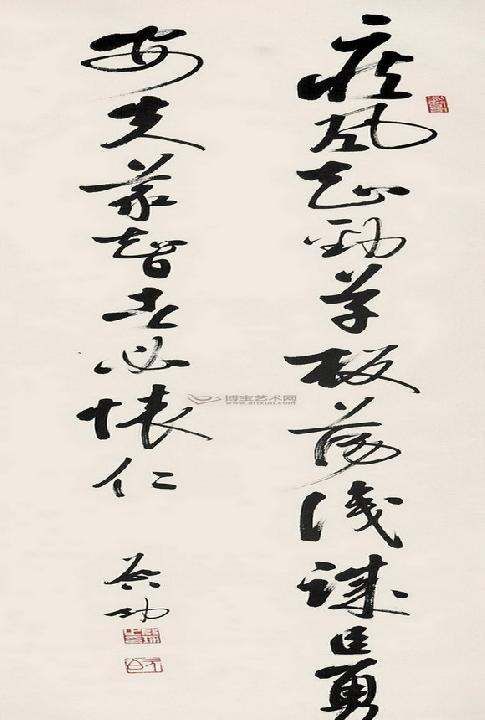 疾风知勁草板蕩識誠臣勇
安義智者必懷仁
启功
博宝艺术网